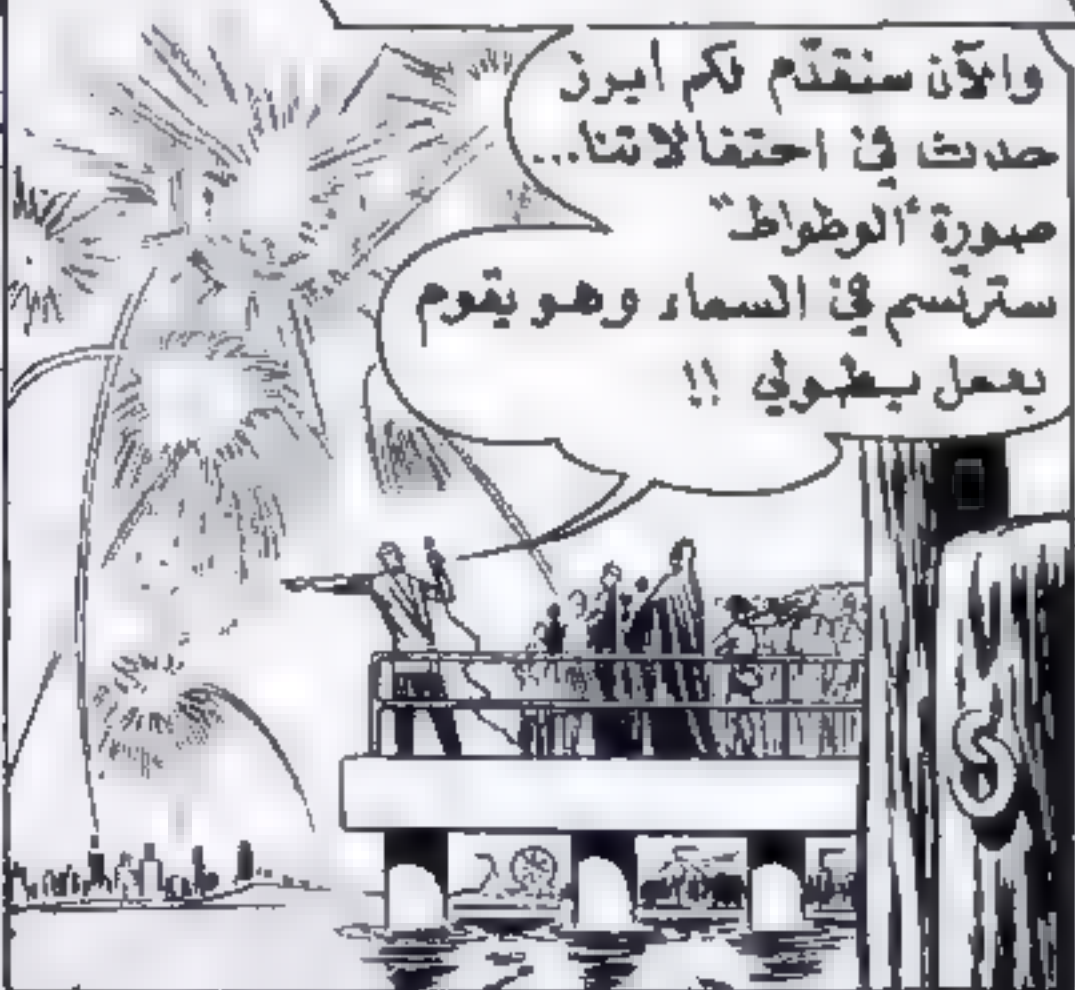 والآن سنقدّم لكم ابرز
حدث في احتفالاتنا...
صورة "الوطواط"
سترتسم في السماء وهو يقوم
بعمل بطولي !!